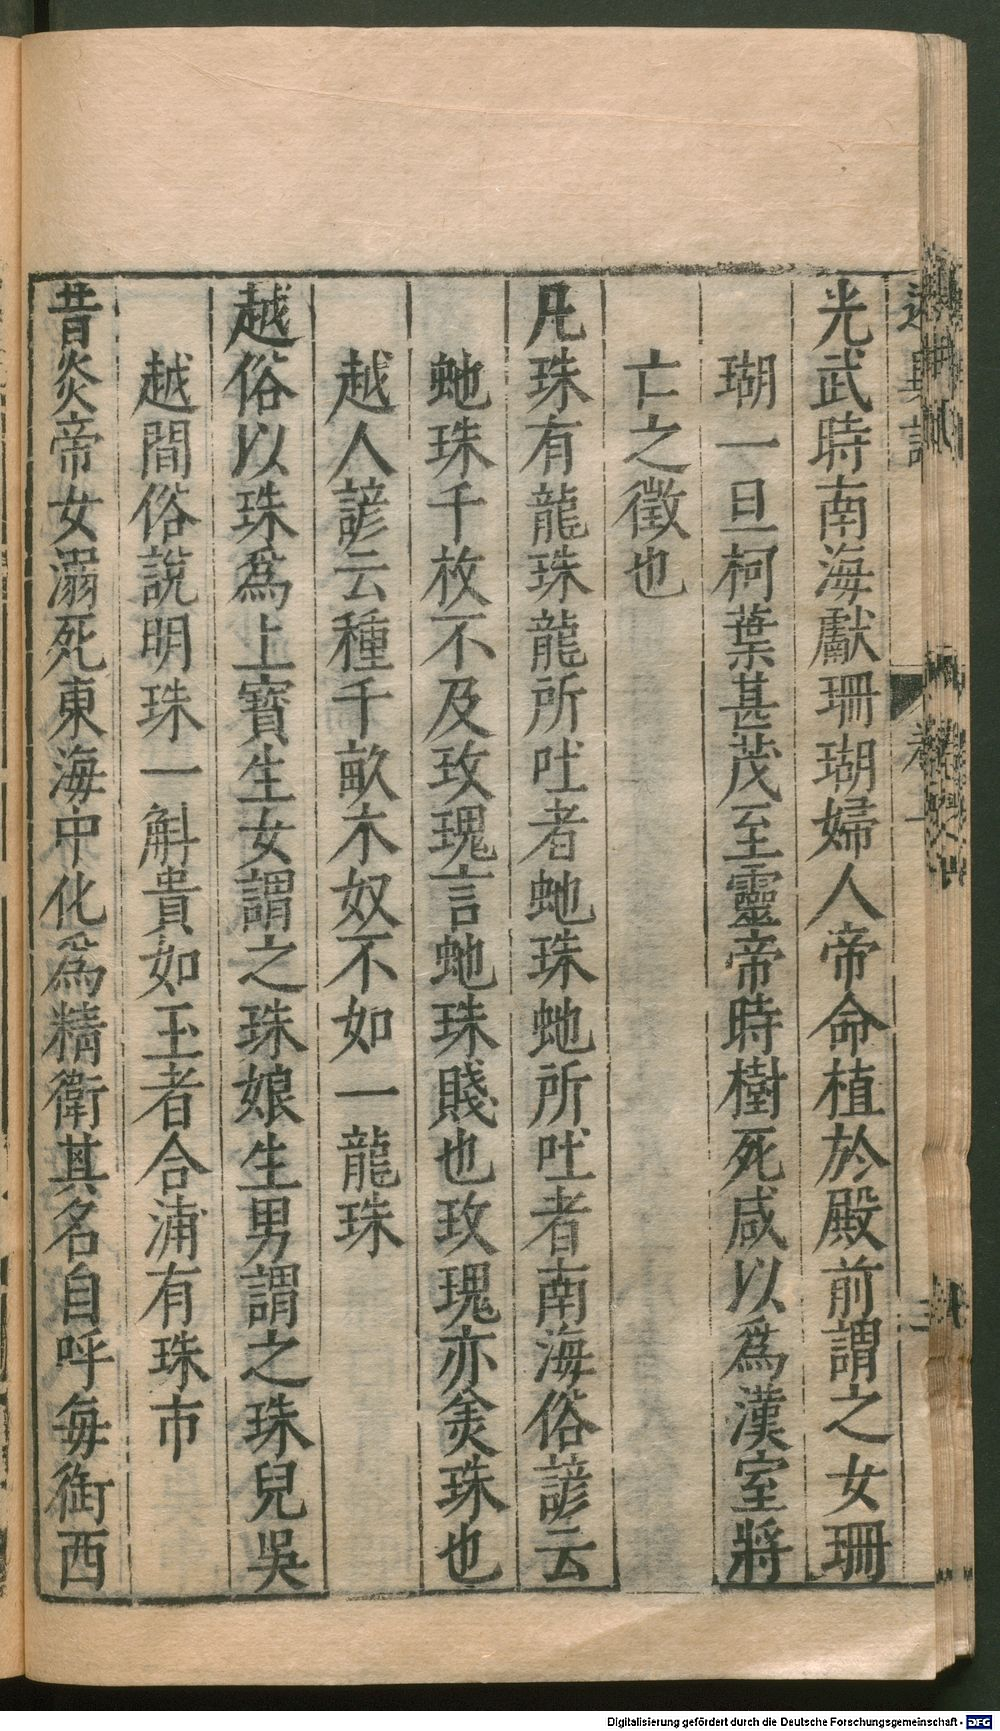 述異記 卷上 三
光武時南海獻珊瑚婦人帝命植於殿前謂之女珊
瑚一旦柯葉甚茂至靈帝時樹死咸以爲漢室將
亡之徵也
凡珠有龍珠龍所吐者虵珠虵所吐者南海俗諺云
虵珠千枚不及玫瑰言虵珠賤也玫瑰亦美珠也
越人諺云種千畝木奴不如一龍珠
越俗以珠爲上寶生女謂之珠娘生男謂之珠兒吳
越間俗說明珠一斛貴如玉者合浦有珠市
昔炎帝女溺死東海中化爲精衛其名自呼每銜西
Digitalisierung gefördert durch die Deutsche Forschungsgemeinschaft - DFG